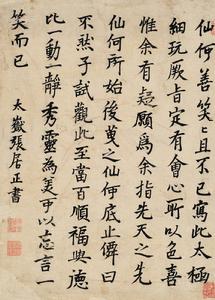 仙何善笑笑且不已寫此太極
細玩厥旨定有會心所以色喜
惟余有疑願為余指先天之先
仙何所始後叟之仙何底止僊曰
不然子試觀此至當百順福興德
比一動一靜秀靈為美中以忘言一
笑而已
太嶽張居正書